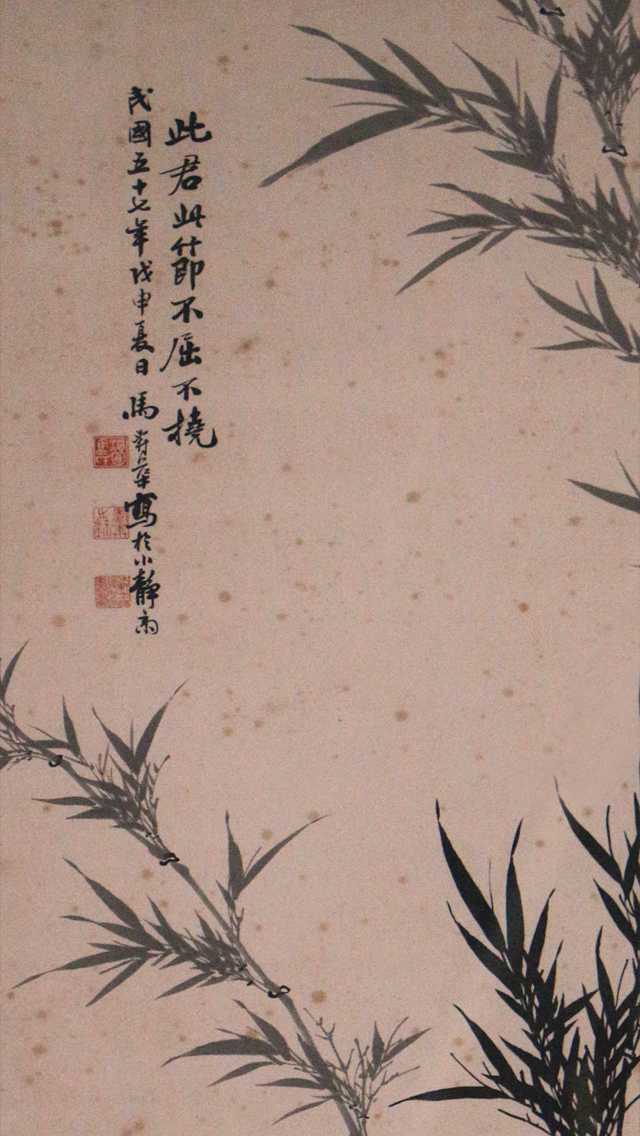 此君此節不屈不撓
民國五十七年戊申夏日馬壽華寫於小靜斋